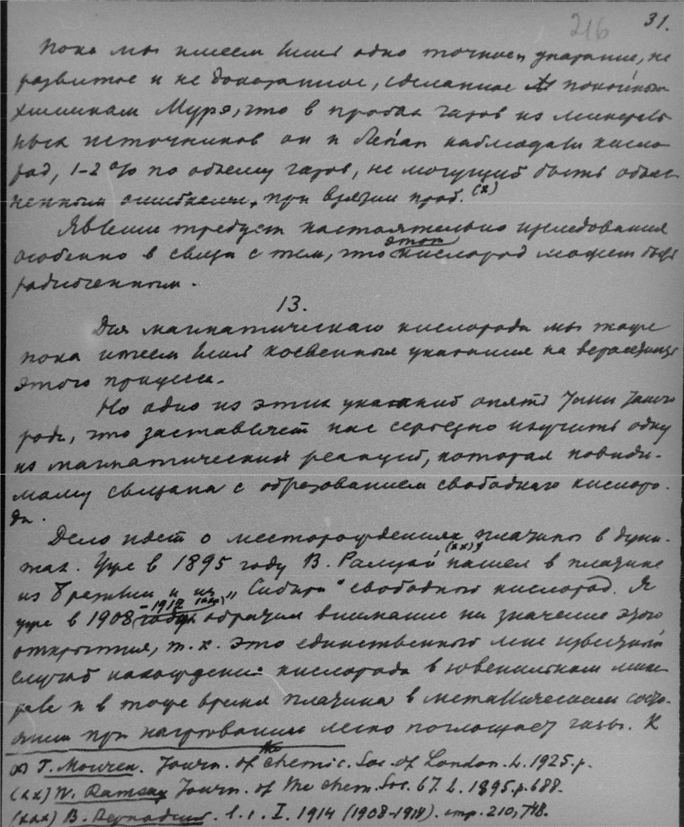 216 31.
Пока мы имеем лишь одно точное указание, не
развитое и не доказанное, сделанное покойным
химиком Мурэ, что в пробах газов из минераль
ных источников он и Лепап наблюдали кисло
род, 1-2% по объему газов, не могущий быть объяс
ненным ошибками, при взятии проб. (x)
Явление требует настоятельно исследования
особенно в связи с тем, что этот кислород может быть
радиогенным.
13.
Для магматического кислорода мы тоже
пока имеем лишь косвенные указания на
этого процесса.
Но одно из этих указаний опять
рода, что заставляет нас серьезно изучить одну
из магматических реакций, которая повиди-
мому связана с образованием свободного кислоро-
да.
Дело идет о месторождениях платины в дуни-
тах. Уже в 1895 году В. Рамзай (xx) нашел в платине
из Бразилии и из „Сибири" свободный кислород. Я
уже в 1908-1912 годах обратил внимание на значение этого
открытия, т.к. это единственный мне известный
случай нахождения кислорода в ювенильном мине
рале и в тоже время платина в металлическом состо-
янии при нагревании легко поглощает газы. К
x) Moureu. Journ. of the chemic. Soc. of London. L. 1925. p.
(xx) W. Ramsay Journ. of the chem. Soc. 67. L. 1895. p. 688.
(xxx) В. Вернадский. l. c. I. 1914 (1908-1914). стр. 210,